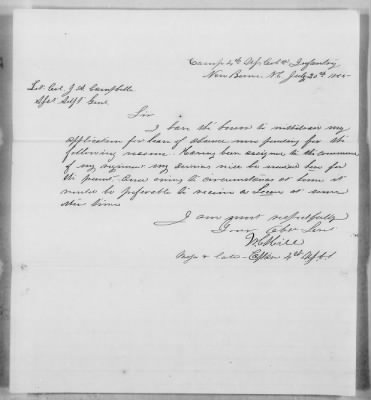 Camp 4th U.S. Col'd Infantry
New Berne, N.C. July 20th 1865
Lt. Col. J. A. Campbell
Asst. Adjt. Genl.
Sir
I have the honor to withdraw my
application for leave of absence now pending for the
following reasons. Having been assigned to the command
of my regiment my services will be needed here for
the present. And owing to circumstances at home it
would be preferable to receive a leave at some
other time.
I am most respectfully
Your Obt. Servt.